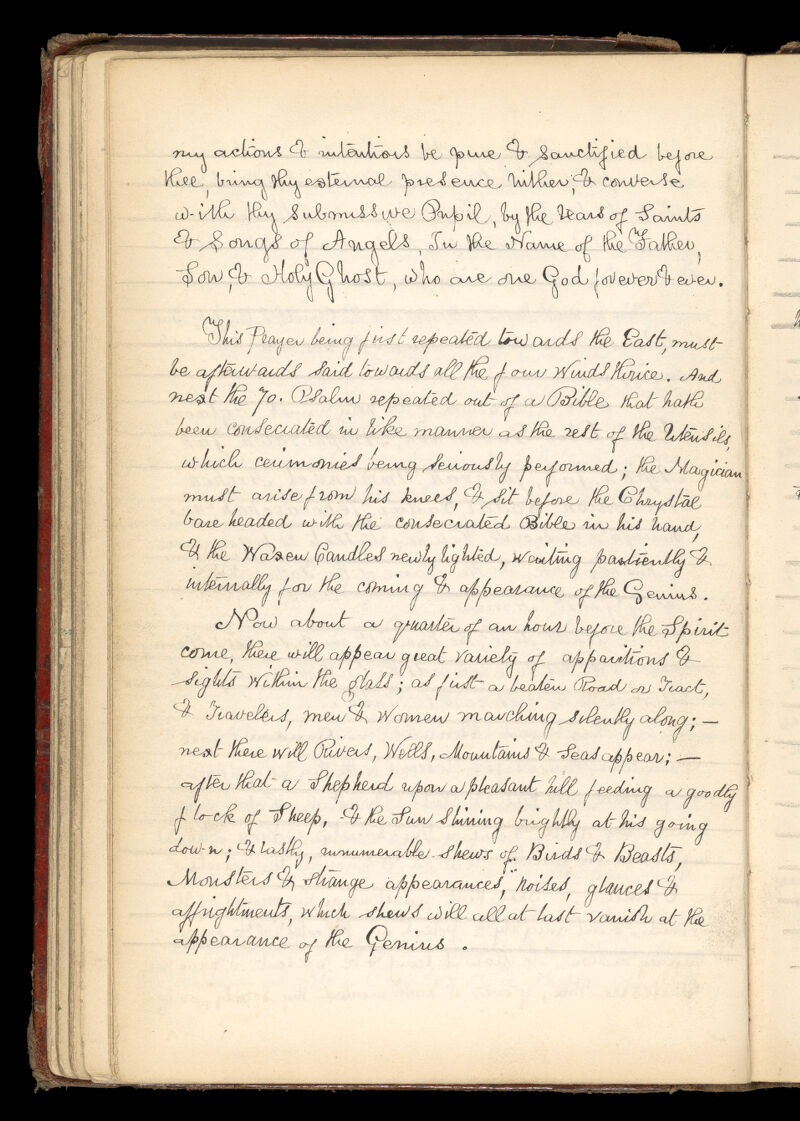 my actions & intentions be pure & Sanctified before
thee, bring thy external presence hither, & converse
with thy Submissive Pupil, by the tears of Saints
& Songs of Angels, In the Name of the Father,
Son, & Holy Ghost, who are one God forever & ever.
This Prayer being first repeated towards the East, must
be afterwards said towards all the four Winds thrice. And
next the 70. Psalm repeated out of a Bible that hath
been consecrated in like manner as the rest of the Utensils,
which cerimonies being seriously performed; the Magician
must arise from his knees, & sit before the Chrystal
bare headed with the consecrated Bible in his hand,
& the Waxen Candles newly lighted, waiting pastiently &
internally for the coming & appearance of the Genius.
Now about a quarter of an hour before the Spirit
come, there will appear great variety of apparitions &
sights within the glass; as first a beaten Road or Tract,
& Travelers, men & women marching silently along; —
next there will Rivers, Wells, Mountains & Seas appear; —
after that a Shepherd upon a pleasant hill feeding a goodly
flock of Sheep, & the Sun shining brightly at his going
down; & lastly, innumerable shews of Birds & Beasts,
Monsters & strange appearances, noises, glances &
affrightments, which shews will all at last vanish at the
appearance of the Genius.